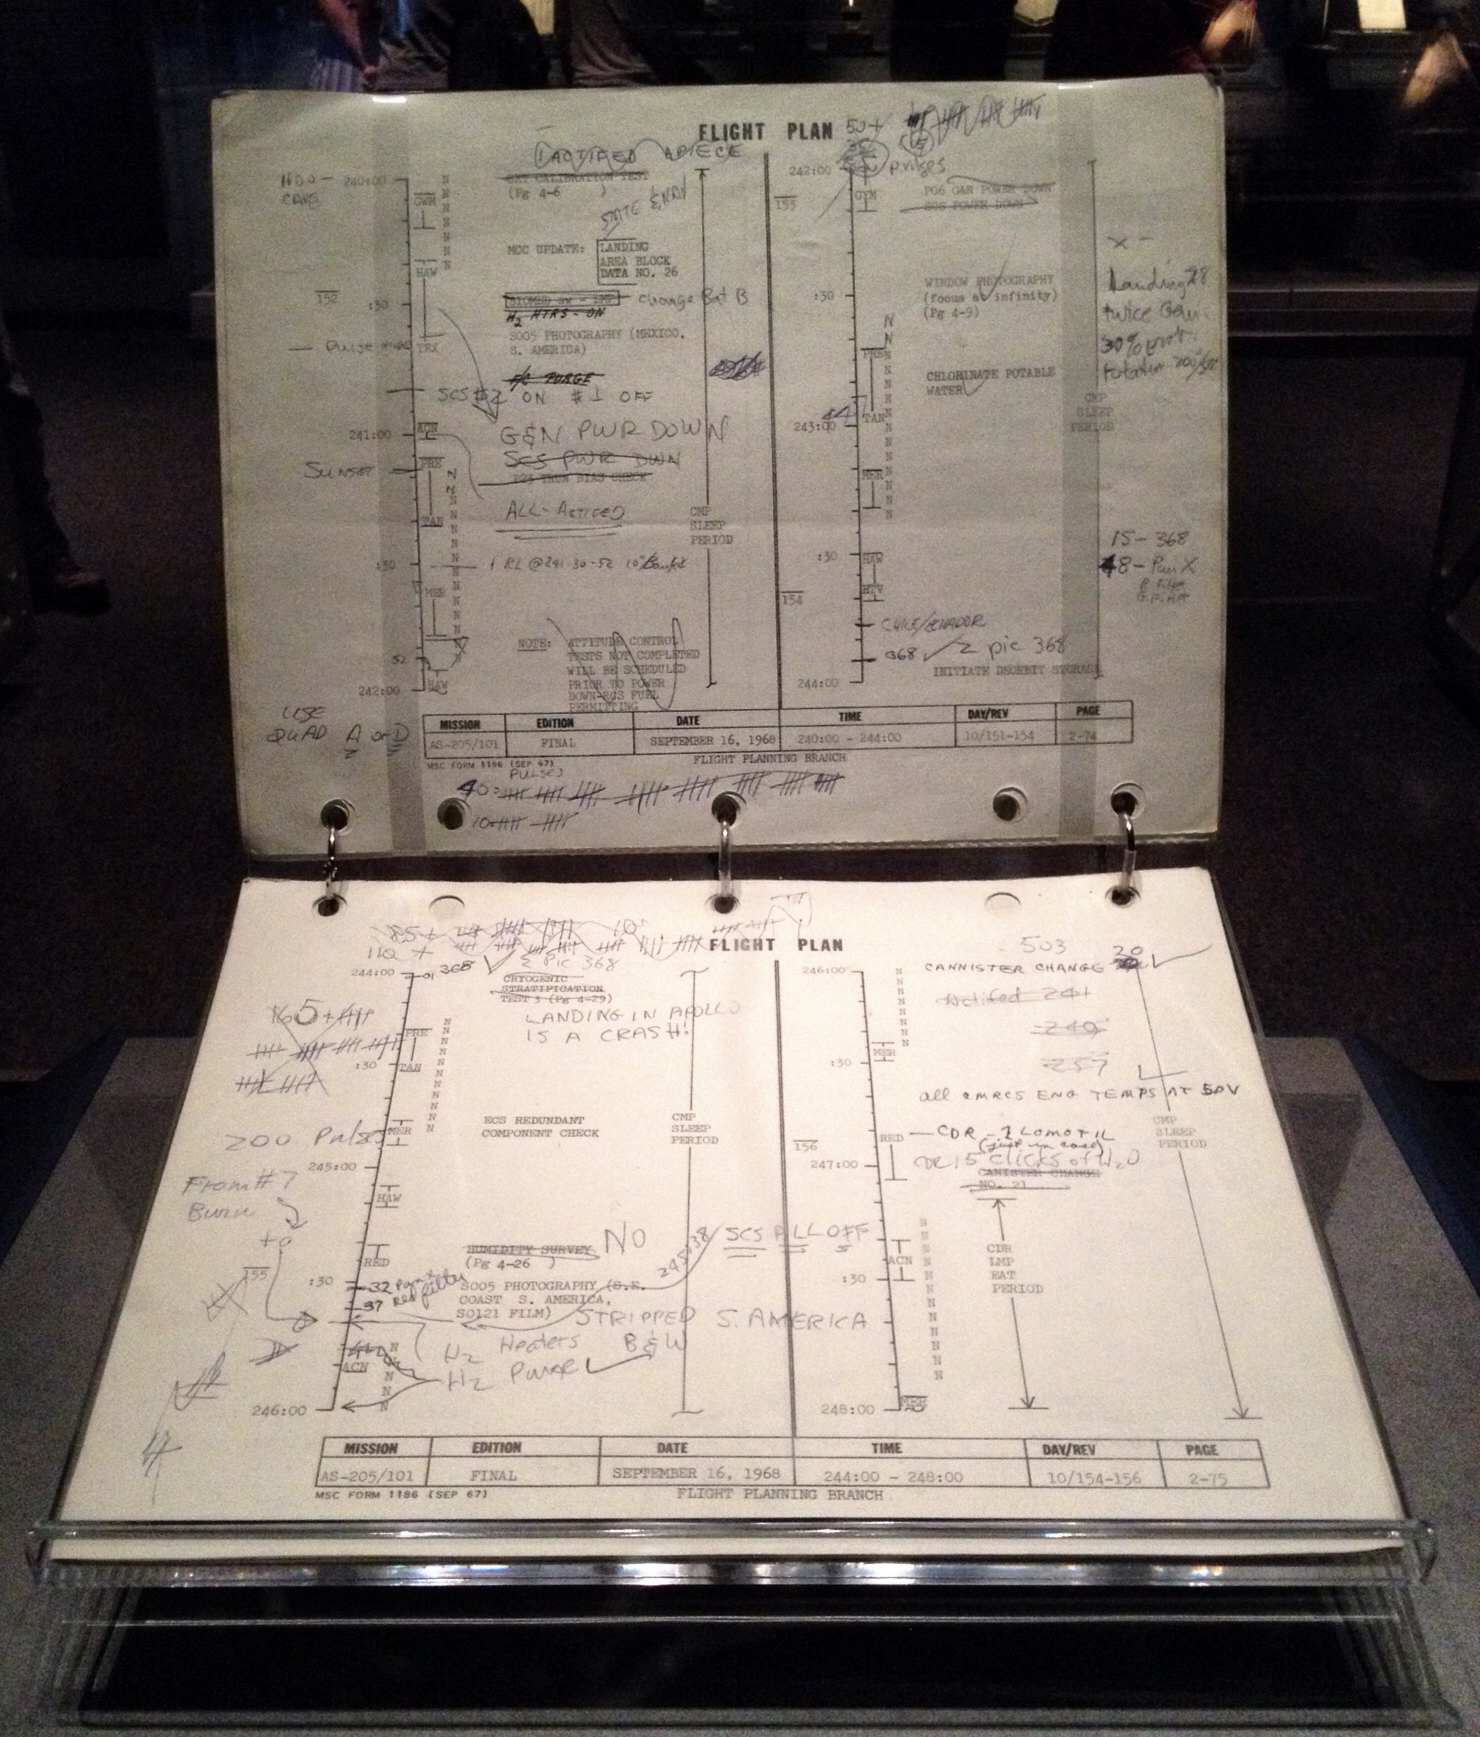 FLIGHT PLAN 50+
1 ACTIFED APIECE
pulses
HOO-
240:00
(Pg 4-6 )
GWM
STATE
MCC UPDATE:
LANDING
AREA BLOCK
DATA NO. 26
HAW
152
:30
change Bat B
H2 HTRS - ON
S005 PHOTOGRAPHY (MEXICO,
S. AMERICA)
TEX
F/C PURGE
SCS #2 ON #1 OFF
ACN
241:00
G&N PWR DOWN
SCS PWR DWN
SUNSET
PRE
P23 TRUN BIAS CHECK
ALL-ACTIFED
TAN
CMP
SLEEP
PERIOD
:30
1 RL @241-30-52
MER
NOTE: ATTITUDE CONTROL
TESTS NOT COMPLETED
WILL BE SCHEDULED
PRIOR TO POWER
DOWN-RCS FUEL
PERMITTING
52
HAW
242:00
USE
QUAD A or D
242:00
GYM
153
P06 G&N POWER DOWN
SCS POWER DOWN
WINDOW PHOTOGRAPHY
(focus at infinity)
(Pg 4-9)
:30
PRE
CHLORINATE POTABLE
WATER
TAN
243:00
CMP
SLEEP
PERIOD
MER
:30
HAW
HTV
154
CHILE/ECUADOR
368 2 pic 368
INITIATE DEORBIT STORAGE
244:00
Landing
twice Gem.
30%
15-368
MISSION EDITION DATE TIME DAY/REV PAGE
AS-205/101 FINAL SEPTEMBER 16, 1968 240:00 - 244:00 10/151-154 2-74
MSC FORM 1186 (SEP 67) FLIGHT PLANNING BRANCH
PULSES
40=
10=
85+
110 +
FLIGHT PLAN
503
244:00
01 368 2 pic 368
CRYOGENIC
STRATIFICATION
TEST 3 (Pg 4-29)
LANDING IN APOLLO
IS A CRASH!
PRE
:30
TAN
MER
ECS REDUNDANT
COMPONENT CHECK
CMP
SLEEP
PERIOD
200 Pulses
245:00
From #7
Burn
HAW
HUMIDITY SURVEY NO
(Pg 4-26)
RED
155
:30
32
37
S005 PHOTOGRAPHY (S.E.
COAST S. AMERICA,
SO121 FILM) STRIPPED S. AMERICA
B&W
H2 Heaters
H2 Purge
ACN
246:00
246:00
CANNISTER CHANGE 20
Actifed 241
all CMRCS ENG TEMPS AT 5.0V
:30
MER
156
RED
CDR - 1 LOMOTIL
(just in case)
CDR 15 clicks of H2O
CANISTER CHANGE
NO. 21
CMP
SLEEP
PERIOD
247:00
SCS ALL OFF
ACN
CDR
LMP
EAT
PERIOD
:30
MER
248:00
MISSION EDITION DATE TIME DAY/REV PAGE
AS-205/101 FINAL SEPTEMBER 16, 1968 244:00 - 248:00 10/154-156 2-75
MSC FORM 1186 (SEP 67) FLIGHT PLANNING BRANCH